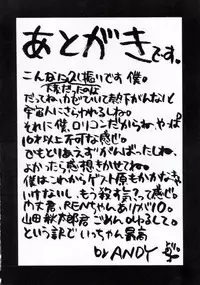 あとがきです。
こんな
です僕。
だってね、カゼひいて熱下がんないし
宇宙人にさらわれるしね。
それに僕、ロリコンだからね、やっぱ
10才以上不可な感じ。
でもとりあえずがんばったしね、
よかったら感想きかせてね。
僕はこれからゲスト原もかかなき
いけないし、もう殺す気?って感じ。
RENちゃんありが10。
山田桃太郎君ごめんゆるして。
という訳でいっちゃん最高
by ANDY